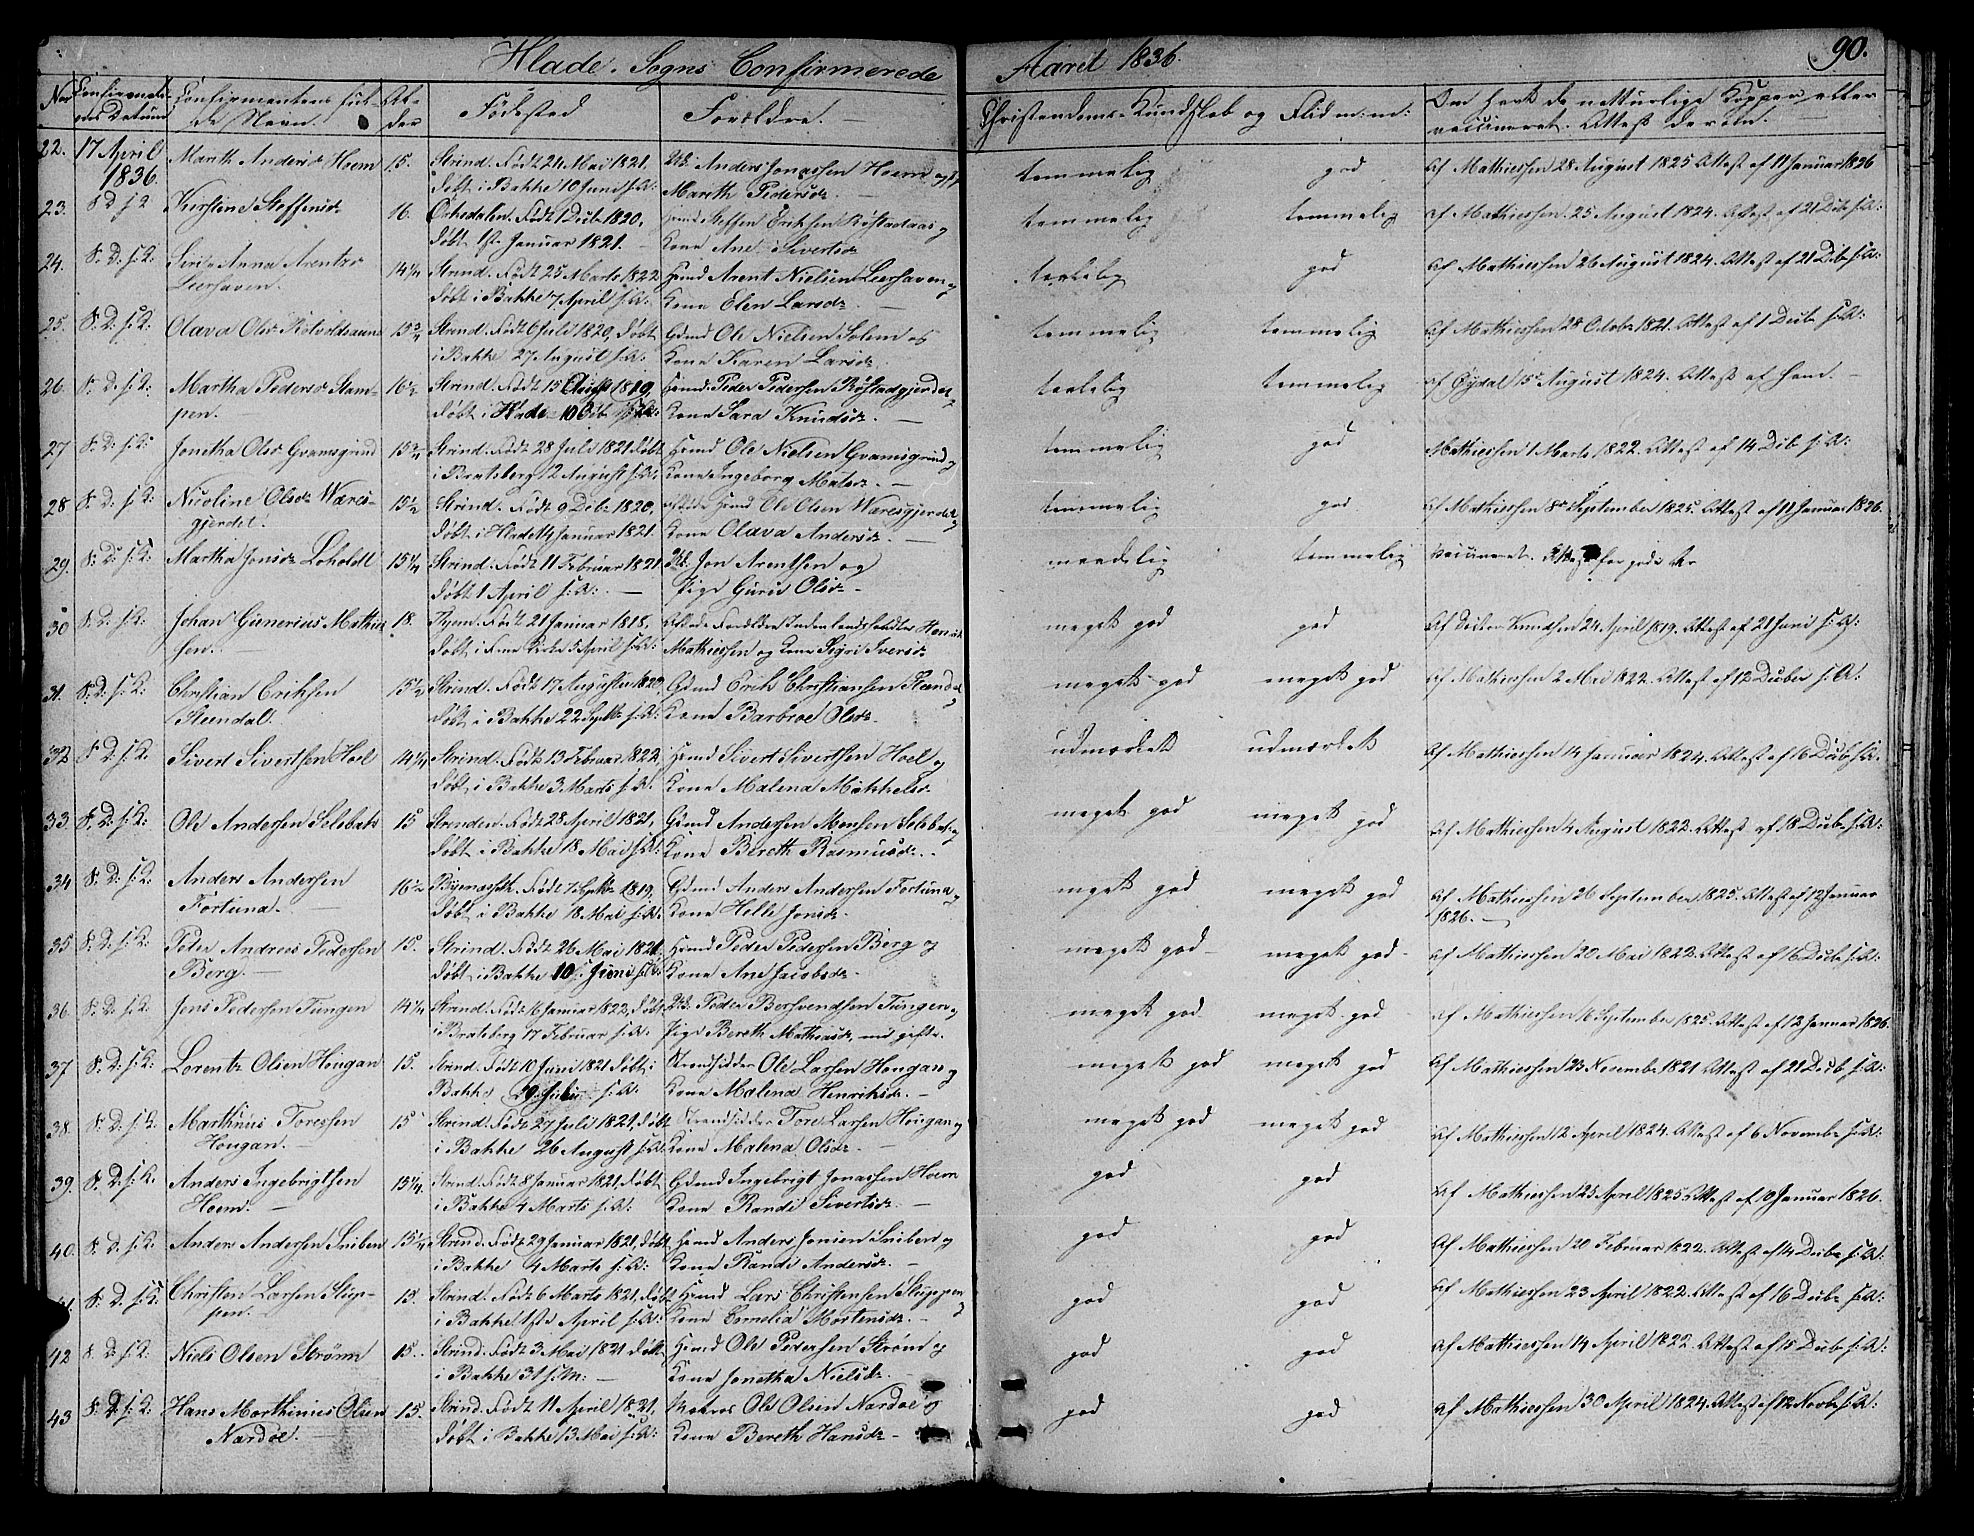 Hlade Sogns Confirmerede Aaret 1836. 90.
No Confirmati- ons Datum Confirmantens ful- de Navn. Al- der Fødested Forældre. Christendoms-Kundskab og Flid m: m: Om havt de naturlige Kopper eller vaccineret. Attest derom.
22. 17 April 1836. Marith Andersd: Hoem 15. Strind. Født 24 Mai 1821. Anders Jonassen Hoem og temmelig god Af Mathiessen 28 August 1825 Attest af 11 Januar 1826
Døbt i Bakke 10 Juni s: A: Mareth Pedersd:
23. S: D: s: A: Kirstine Steffensd: 16. Orkedalen. Født 1 Decbr 1820, Steffen Eriksen og temmelig temmelig af Mathiessen 25 August 1824. Attest af 21 Decbr s: A:
Døbt 1ste Januar 1821. Kone Ane Sivertsd:
24. S: D: s: A: Anna Arentsd: 14 1/4 Strind. Født 25 Marts 1822 Huusmd Arent Nielsen Leerhaven og taalelig god Af Mathiessen 26 August 1824. Attest af 21 Decbr s: A:
Leerhaven. Døbt i Bakke 7 April s: A: Kone Elen Larsd:
25. S: D: s: A: Olava Olsd: 15 3/4 Strind. Født 6 Juli 1820, Døbt Gdmd Ole Nielsen Solem og temmelig temmelig Af Mathiessen 28 Octobr 1821. Attest af 1 Decbr s: A:
i Bakke 27 August s: A: Kone Karen Larsd:
26. S: D: s: A: Martha Pedersd: Stam- 16 1/2 Strind. Født 15 August 1819 Huusmd Peder Pedersen taalelig temmelig af Øydal 15 August 1824. Attest af ham.
pen. Døbt i Hlade 10 Kone Sara Knudsd:
27 S: D: s: A: Jonetha Olsd: Gramsgrind 15 3/4 Strind. Født 28 Juli 1821 Døbt Huusmd Ole Nielsen Gramsgrind og temmelig god Mathiessen 1 Marts 1822. Attest af 14 Decbr s: A:
i Bratsberg 12 August s: A: Kone Ingeborg
28 S: D: s: A: Nicoline Olsd: Wæres- 15 1/2 Strind. Født 9 Decbr 1820, Ole Olsen Wæresgjerdet og temmelig god Af Mathiessen 8 September 1825 Attest af 11 Januar 1826.
gjerdet. Døbt i Hlade 14 Januar 1821. Kone Olava Andersd:
29. S: D: s: A: Martha Jonsd: Loholdt 15 1/4 Strind. Født 11 Februar 1821 Jon Arentsen og maadelig temmelig vaccineret. Attest
Døbt 1 April s: A: Pige Guru Olsd:
30 S: D: s: A: Johan Gunerius Mathie- 18. Født 21 Januar 1818, Forældre temmelig meget god god Af Knudsen 24 April 1819. Attest af 21 Juni s: A:
sen. Døbt i 5 April s: A: Mathiessen og Kone Sigri Iversd:
31. S: D: s: A: Christian Eriksen 15 1/2 Strind. Født 17 Augustii 1820, Gdmd Erik Christiansen Steendal og meget god meget god Af Mathiessen 2 Mai 1822. Attest af 12 Decbr s: A:
Steendal. Døbt i Bakke 22 Septbr s: A: Kone Barbroe Olsd:
32 S: D: s: A: Sivert Sivertsen Hoel 14 1/4 Strind. Født 13 Februar 1822. Huusmd Sivert Sivertsen Hoel og udmærket udmærket Af Mathiessen 14 Januar 1824. Attest af 16 Decbr s: A:
Døbt i Bakke 3 Marts s: A: Kone Malena Mikkelsd:
33. S: D: s: A: Ole Andersen Selsbak 15 Strinden. Født 28 April 1821, Gdmd Andersen Monsen Selsbak og meget god meget god Af Mathiessen 4 August 1822. Attest af 18 Decbr s: A:
Døbt i Bakke 18 Mai s: A: Kone Bereth Rasmusd:
34 S: D: s: A: Anders Andersen 16 1/2 Bynæsset. Født 7 Septbr 1819, Gdmd Anders Andersen Fortuna og meget god meget god Af Mathiessen 26 September 1825. Attest af 12 Januar
Fortuna. Døbt i Bakke 18 Mai s: A: Kone Helle Jonsd: 1826.
35 S: D: s: A: Peder Andreas Pedersen 15. Strind. Født 26 Mai 1821. Huusmd Peder Pedersen Berg og meget god meget god Af Mathiessen 20 Mai 1822. Attest af 16 Decbr s: A:
Berg. Døbt i Bakke 10 Juni s: A: Kone Ane Jacobsd:
36. S: D: s: A: Jens Pedersen Tungen 14 1/4 Strind. Født 16 Januar 1822, Døbt Peder Bersvendsen Tungen og meget god meget god Af Mathiessen 16 September 1825. Attest af 12 Januar 1826.
i Bratsberg 17 Februar s: A: Pige Bereth Mathiasd:, nu gifte.
37. S: D: s: A: Lorentz Olsen Hougan 15. Strind. Født 10 Juni 1821 Døbt i Strandsidder Ole Larsen Hougan og meget god meget god Af Mathiessen 23 Novembr 1821 Attest af 21 Decbr s: A:
Bakke 29 Julii s: A: Kone Malena Henriksd:
38. S: D: s: A: Marthinus Toresen 15 Strind. Født 27 Juli 1821, Døbt Strandsidder Tore Larsen Hougan og meget god meget god Af Mathiessen 12 April 1824. Attest af 6 Novembr s: A:
Hougan. i Bakke 26 August s: A: Kone Malena Olsd:
39. S: D: s: A: Anders Ingebrigtsen 15 1/4. Strind. Født 8 Januar 1821, Døbt Gdmd Ingebrigt Jonassen Hoem god god Af Mathiessen 25 April 1825 Attest af 10 Januar 1826.
Hoem. i Bakke 4 Marts s: A: Kone Randi Sivertsd:
40. S: D: s: A: Anders Andersen Sniben 15 1/4 Strind. Født 29 Januar 1821, Døbt Huusmd Anders Jonsen Sniben og god god Af Mathiessen 20 Februar 1822. Attest af 14 Decbr s: A:
i Bakke 4 Marts s: A: Kone Randi Andersd:
41. S: D: s: A: Christen Larsen Stup- 15. Strind. Født 6 Marts 1821, Døbt Huusmd Lars Christensen Stuppen og god god Af Mathiessen 23 April 1822. Attest af 16 Decbr s: A:
pen. i Bakke 1ste April s: A: Kone Cornelia Mortensd:
42 S: D: s: A: Niels Olsen Strøm 15. Strind. Født 3 Mai 1821 Døbt Huusmd Ole Pedersen Strøm og god god Af Mathiessen 14 April 1822. Attest af 15 Decbr s: A:
i Bakke 31 s: M: Kone Jonetha Nielsd:
43 S: D: s: A: Hans Marthinus Olsen 15. Strind. Født 11 April 1821, Ole Olsen Nardoe og god god af Mathiessen 30 April 1824. Attest af 12 Novbr s: A:
Nardoe. Døbt i Bakke 13 Mai s: A: Kone Bereth Hansd: